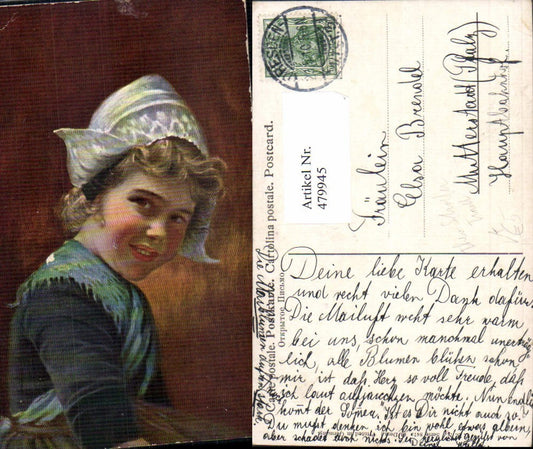 DRESDEN
Artikel Nr.
479945
Fräulein
Elsa Brendel
Mutterstadt (Pfalz)
Hauptbahnhof.
Carte postale. Postkarte. Cartolina postale. Postcard.
Открытое Письмо
Deine liebe Karte erhalten
und recht vielen Dank dafür.
Die Mailuft weht sehr warm
bei uns, schon manchmal unerträg-
lich, alle Blumen blühen schon
mir ist das Herz so voll Freude, daß
ich laut aufjauchzen möchte. Nun endlich
kommt der Sommer. Ist es Dir nicht auch so?
Du wirst denken ich bin wohl etwas albern,
aber schadet doch nichts. Sei herzlichst gegrüßt von
Deiner